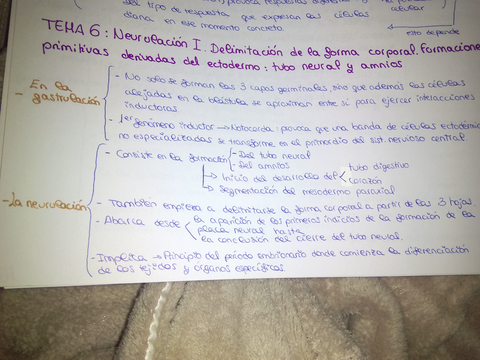 del tipo de respuesta que expresan las células
diana en ese momento concreto.
celular
esto depende
TEMA 6: Neurulación I. Delimitación de la forma corporal. Formaciones
primitivas derivadas del ectodermo: tubo neural y amnios
- En la gastrulación
- No solo se forman las 3 capas germinales, sino que además las células
alejadas en la blástula se aproximan entre sí para ejercer interacciones
inductoras.
- 1er fenómeno inductor → Notocorda: provoca que una banda de células ectodérmicas
no especializadas se transforme en el primordio del sist. nervioso central.
- La neurulación
- Consiste en la formación - Del tubo neural
- Del amnios
→ Inicio del desarrollo del tubo digestivo
corazón
→ Segmentación del mesodermo paraxial
- También empieza a delimitarse la forma corporal a partir de las 3 hojas
- Abarca desde la aparición de los primeros indicios de la formación de la
placa neural hasta
la conclusión del cierre del tubo neural.
- Implica → Principio del período embrionario donde comienza la diferenciación
de los tejidos y órganos específicos.